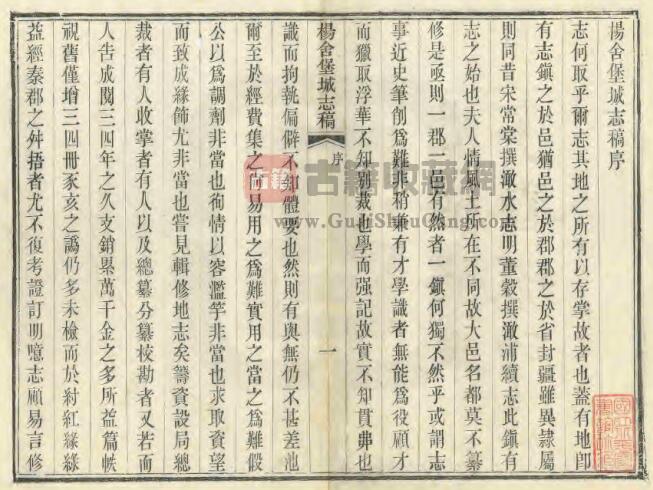 楊舍堡城志稿序
志何取乎爾志其地之所有以存掌故者也蓋有地卽
有志鎭之於邑猶邑之於郡郡之於省封疆雖異隷屬
則同昔宋常棠撰澉水志明董穀撰澉浦續志此鎭有
志之始也夫人情風土所在不同故大邑名都莫不纂
修是亟則一郡一邑有然者一鎭何獨不然乎或謂志
事近史筆創爲難非稍兼有才學識者無能爲役顧才
而獵取浮華不知別裁也學而强記故實不知貫弗也
楊舍堡城志稿
序
一
識而拘執偏僻不知體要也然則有與無仍不甚差池
爾至於經費集之尙易用之爲難實用之當之爲難假
公以爲調劑非當也徇情以容濫竽非當也求取資望
而致成緣飾尤非當也嘗見輯修地志矣籌資設局總
裁者有人收掌者有人以及總纂分纂校勘者又若而
人告成閱三四年之久支銷累萬千金之多所益篇帙
視舊僅增三四冊豕亥之譌仍多未檢而於紂紅緣綠
益經秦郡之舛捂者尤不復考證訂明噫志顧易言修
古籍
古籍收藏网
www.GuJiShouCang.com